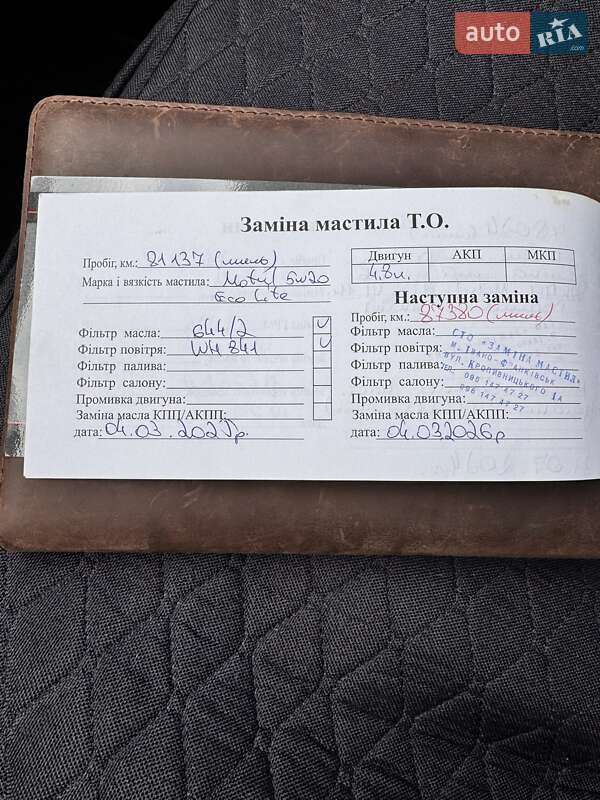 auto RIA .com
Заміна мастила Т.О.
Пробіг, км.: 81137 (миль)
Марка і вязкість мастила: Motul 5w20
Eco Lite
Двигун АКП МКП
4.8л.
Наступна заміна
Пробіг, км.: 87380 (миль)
Фільтр масла: 644/2
Фільтр повітря: WH 841
Фільтр палива:
Фільтр салону:
Промивка двигуна:
Заміна масла КПП/АКПП:
дата: 04.03.2025р.
Фільтр масла:
Фільтр повітря:
Фільтр палива:
Фільтр салону:
Промивка двигуна:
Заміна масла КПП/АКПП:
дата: 04.032026р
СТО «ЗАМІНА МАСТИЛ»
м. Івано-Франківськ
вул. Кропивницького 1А